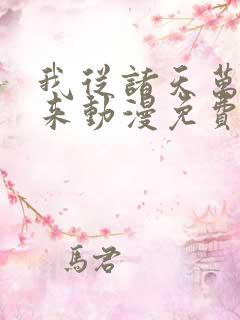 我從諸天萬
來動漫免費
馬君